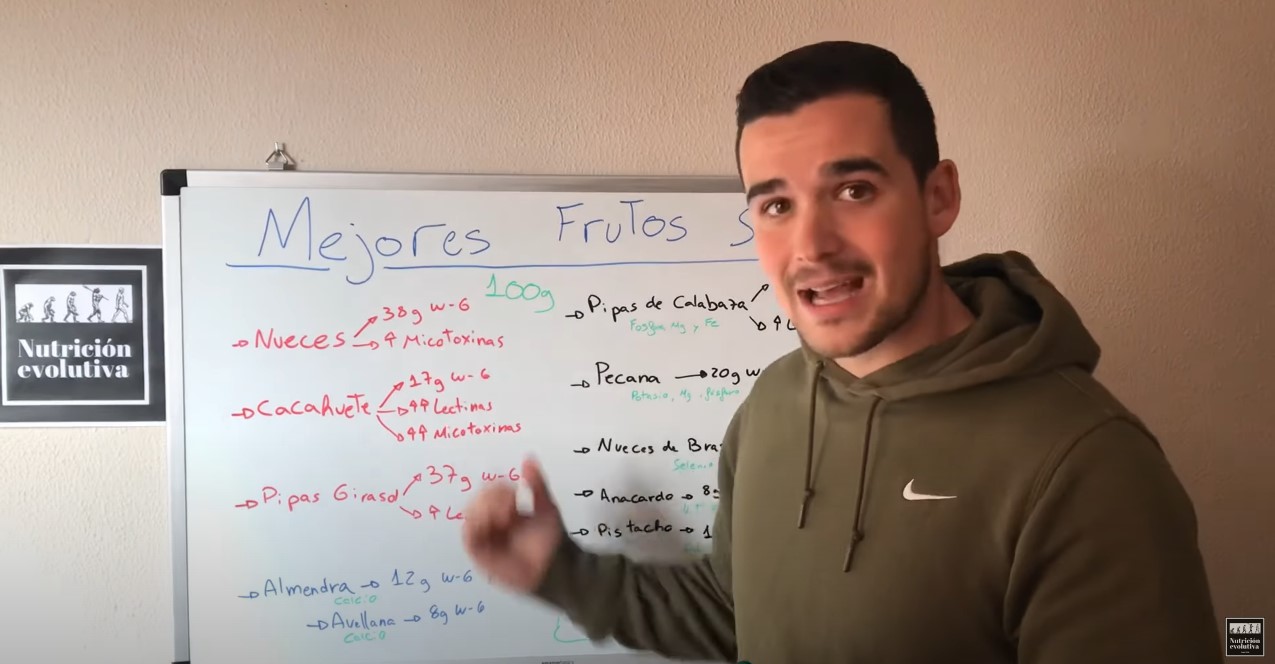 Mejores Frutos S
100g
Nueces
38g w-6
↑ Micotoxinas
Cacahuete
17g w-6
↑↑ Lectinas
↑↑ Micotoxinas
Pipas Girasol
37g w-6
↑ Le
Almendra → 12g w-6
Calcio
Avellana → 8g w-6
Calcio
Pipas de Calabaza
↑ L
Mg y Fe
Pecana → 20g w
Potasio, Mg, fósforo
Nueces de Bra
Selenio
Anacardo → 8g
Pistacho → 1
Nutrición
evolutiva
Nutrición
evolutiva